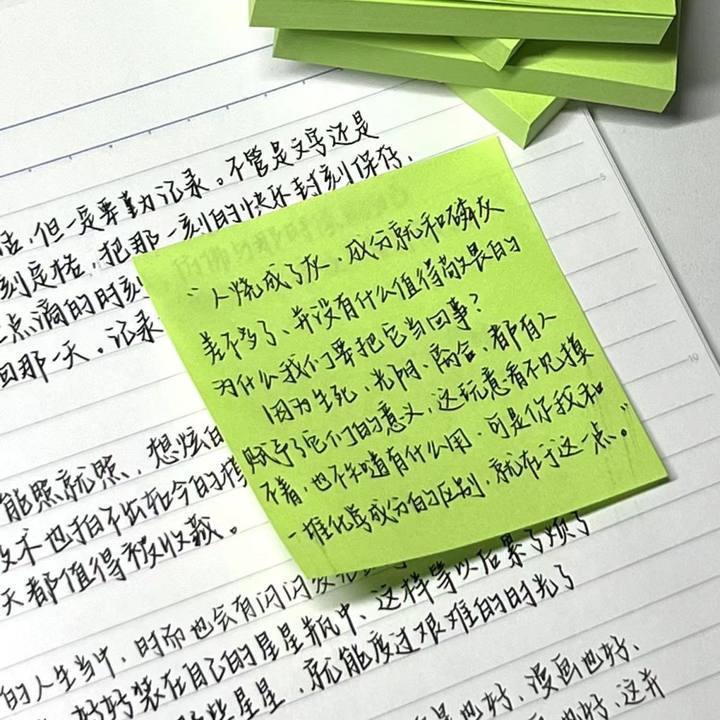 活,但一定要勤力记录。不管是文字还是
刻定格,把那一刻的快乐封刻保存,
点滴的时刻
回那一天。记录
“人烧成了灰,成分就和磷灰
差不多了、并没有什么值得敬畏的
为什么我们要把它当回事?
因为生死,光阴、离合,都有人
赋予了它们的意义,这玩意看不见摸
不着,也不知道有什么用,可是你我和
一堆化学成分的区别,就在于这一点。”
能照就照,想炫的
技术也拍不出如今的模
天都值得被收藏。
的人生当中,时而也会有闪闪发
好好装在自己的星星瓶中、这样等以后累了烦了
星星,就能度过艰难的时光了
也好、漫画也好、
也好、这并
5
10